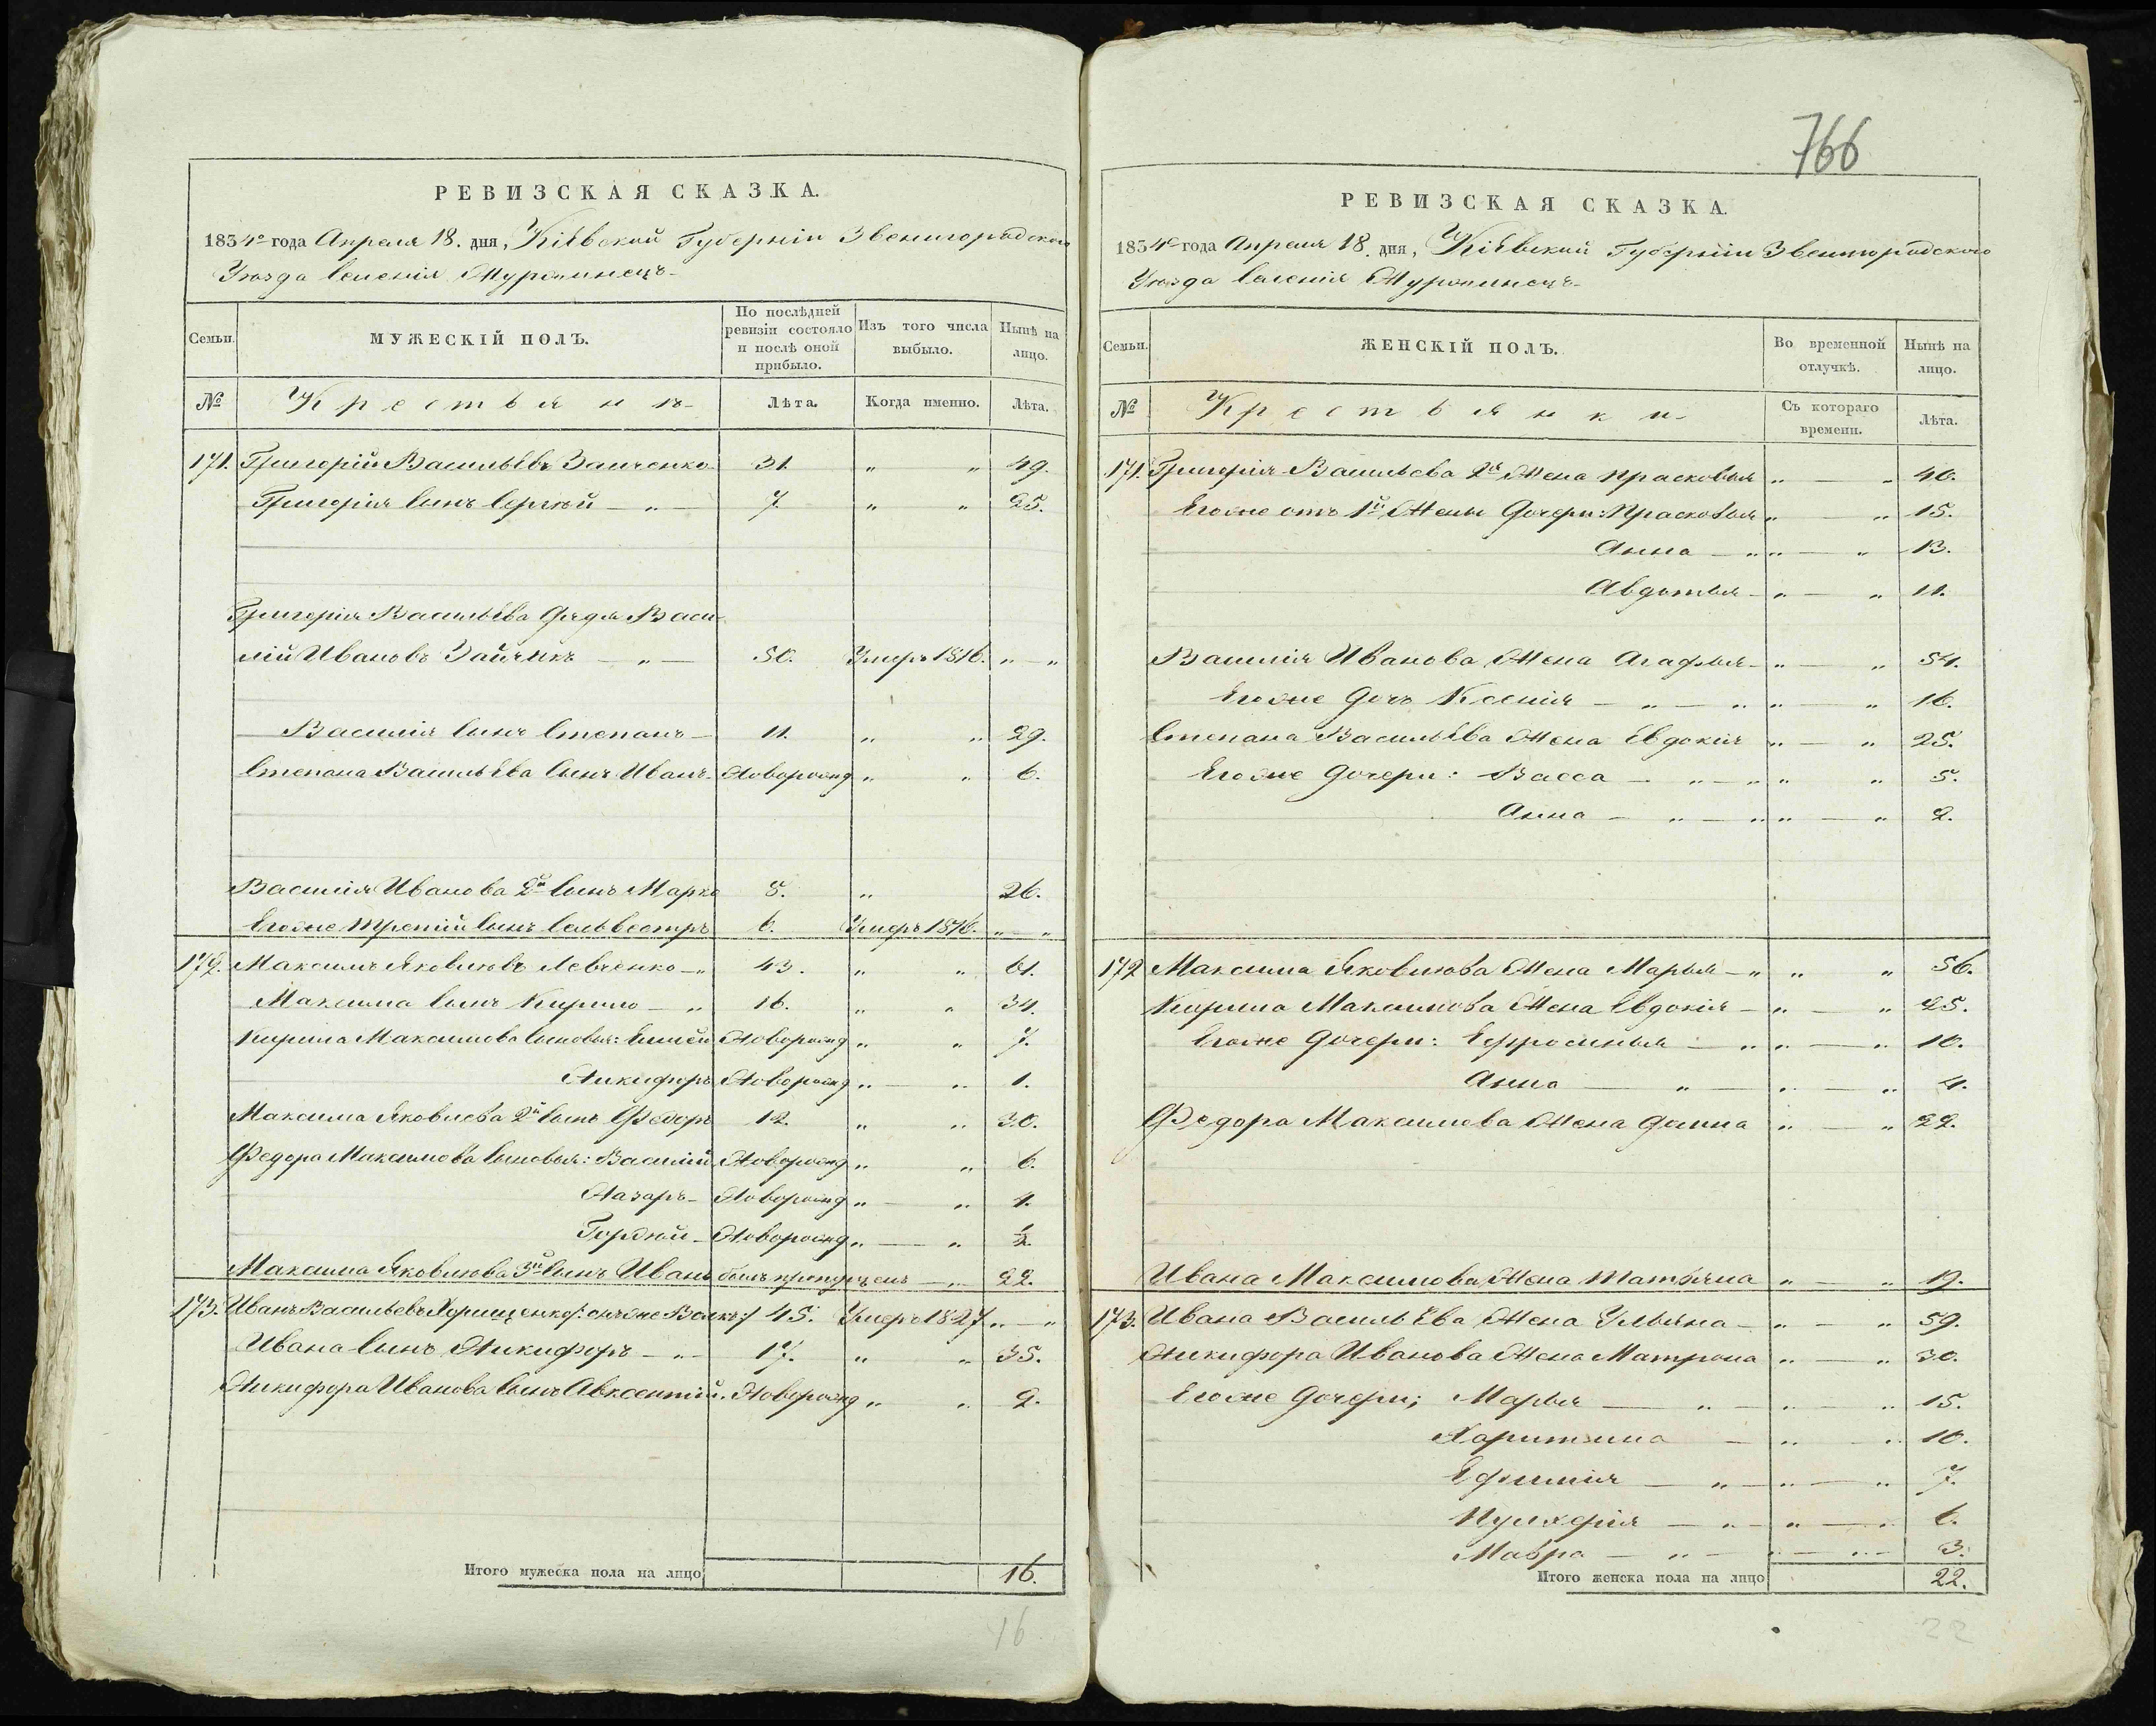 РЕВИЗСКАЯ СКАЗКА.
1834го года Апреля 18. дня, Кіевской Губерніи Звенигородского
Уѣзда Селенія Журжинецъ
Семьи. МУЖЕСКІЙ ПОЛЪ. По послѣдней ревизіи состояло и послѣ оной прибыло. Изъ того числа выбыло. Нынѣ на лицо.
№ Крестьянъ Лѣта. Когда именно. Лѣта.
171. Григорій Васильевъ Заиченко 31. " " 49.
Григорія Сынъ Сергѣй — " — 7 " " 25.
Григорія Васильева дядя Васи-
лій Ивановъ Зайчикъ — " — 50. Умеръ 1816. " — "
Василія Сынъ Степанъ — 11. " " 29.
Степана Васильева Сынъ Иванъ — Новорожд " " 6.
Василія Иванова 2й Сынъ Марко 8. " 26.
Егоже третій Сынъ Сельвестръ 6. Умеръ 1816. " — "
172. Максимъ Яковлевъ Левченко — " 43. " " 61.
Максима Сынъ Кирило — " 16. " " 34.
Кирила Максимова Сыновья: Елисей Новорожд " " 7.
Никифоръ Новорожд " — " 1.
Максима Яковлева 2й Сынъ Федоръ 12. " " 30.
Федора Максимова Сыновья: Василій Новорожд " " 6.
Назаръ — Новорожд " — " 4.
Гордѣй — Новорожд " — " ½
Максима Яковлева 3й Сынъ Иванъ былъ пропущенъ — " 22.
173. Иванъ Васильевъ Хорищенко /: онъ же Волкъ :/ 45. Умеръ 1827 " — "
Ивана Сынъ Никифоръ — " — 17. " " 35.
Никифора Иванова Сынъ Авксентій. Новорожд " " 2.
Итого мужеска пола на лицо 16.
16
766
РЕВИЗСКАЯ СКАЗКА.
1834го года Апреля 18. дня, Кіевской Губерніи Звенигородского
Уѣзда Селенія Журжинецъ
Семьи. ЖЕНСКІЙ ПОЛЪ. Во временной отлучкѣ. Нынѣ на лицо.
№ Крестьянки Съ котораго времени. Лѣта.
171. Григорія Васильева 2я Жена Прасковья " — " 40.
Егоже отъ 1й Жены Дочери: Прасковья " — " 15.
Анна — " " — " 13.
Авдотья — " — " 11.
Василія Иванова Жена Агафья — " — " 54.
Егоже Дочь Ксенія — " — " " — " 16.
Степана Васильева Жена Евдокія " — " 25.
Егоже Дочери: Васса — " — " " " 5.
Анна — " — " " — " 2.
172 Максима Яковлева Жена Марья — " " " 56.
Кирила Максимова Жена Евдокія — " — " 25.
Егоже Дочери: Ефросинья — " " — " 10.
Анна — " — " — " 4.
Федора Максимова Жена Домна " — " 22.
Ивана Максимова Жена Татьяна " — " 19.
173. Ивана Васильева Жена Ульяна — " — " 59.
Никифора Иванова Жена Матрона " — " 30.
Егоже Дочери; Марья — " — " — " 15.
Харитина — " — " 10.
Ефимія — " — " — " 7.
Пулхерія — " — " — " 6.
Мавра — " — " — " — 3.
Итого женска пола на лицо 22.
22